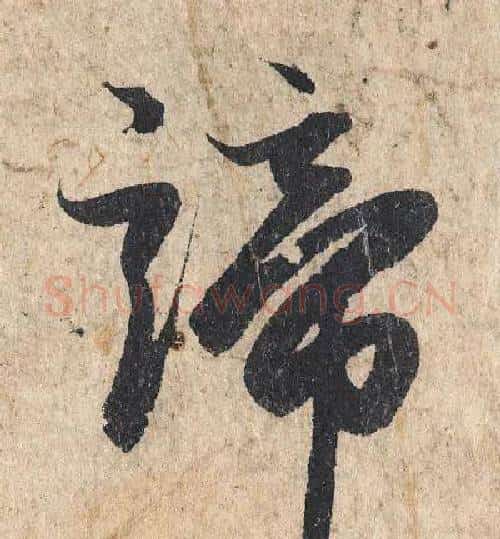 諦
Shufawang.CN